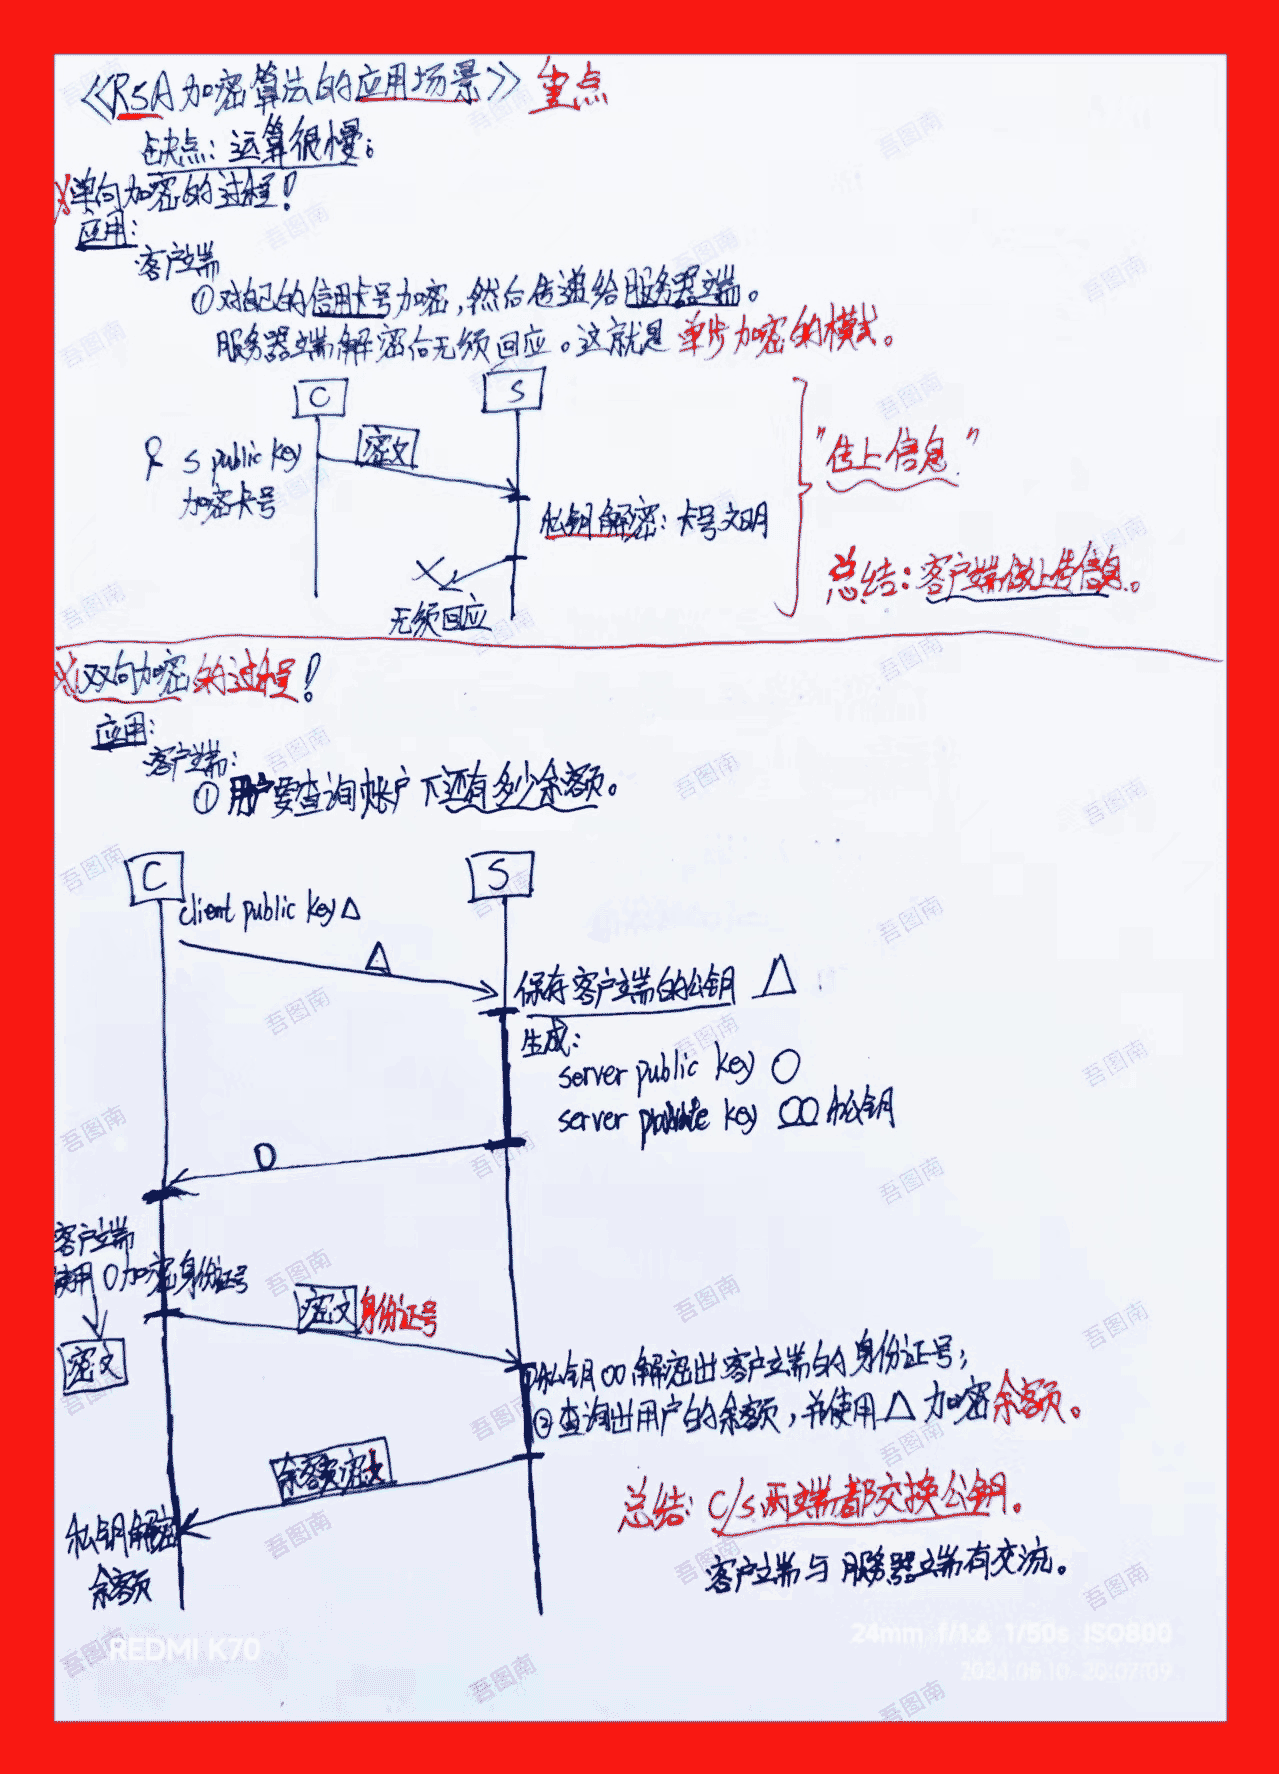 《RSA加密算法的应用场景》重点
缺点：运算很慢；
单向加密的过程！
应用：
客户端
①对自己的信用卡号加密，然后传递给服务器端。
服务器端解密后无须回应。这就是单步加密的模式。
C
S
S public key
密文
加密卡号
"传上信息"
私钥解密：卡号文明
总结：客户端做上传信息。
无须回应
双向加密的过程！
应用：
客户端：
①用户要查询账户下还有多少余额。
C
S
client public key △
△
保存客户端的公钥 △
生成：
server public key ○
server private key ○○ 私钥
○
客户端
使用○加密身份证号
密文 身份证号
密文
①私钥○○解密出客户端的身份证号；
②查询出用户的余额，并使用△加密余额。
余额密文
总结：C/S两端都交换公钥。
私钥解密
余额
客户端与服务器端有交流。
REDMI K70
24mm f/1.6 1/50s ISO800
2024.06.10 20:07:09
吾图南